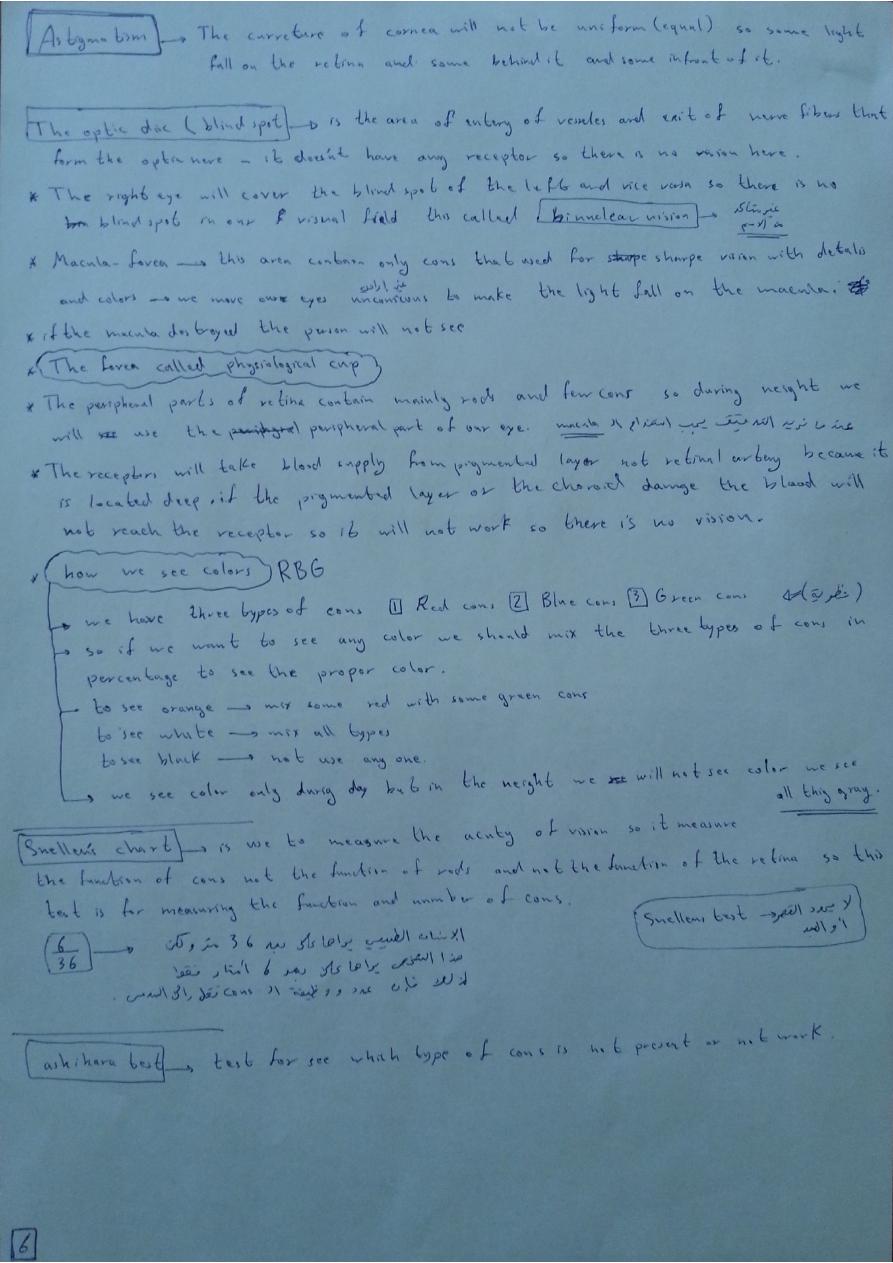 Astigmatism → The curreture of cornea will not be uniform (equal) so some light
fall on the retina and some behind it and some infront of it.
The optic disc (blind spot) → is the area of entery of vessels and exit of nerve fibers that
form the optic nerve – it doesn't have any receptor so there is no vision here.
* The right eye will cover the blind spot of the left and vice versa so there is no
blind spot in our visual field this called binnuclear vision → غير متأكد
من الاسم
* Macula-fovea → this area contain only cons that used for sharpe vision with details
غير ارادي
and colors → we move our eyes unconicous to make the light fall on the macula.
* if the macula destroyed the person will not see
* The fovea called physiological cup
* The peripheral parts of retina contain mainly rods and few cons so during neight we
will use the peripheral part of our eye. عندما نريد التدقيق يجب استخدام الـ macula
* The receptors will take blood supply from pigmented layer not retinal artery because it
is located deep, if the pigmented layer or the choroid damge the blood will
not reach the receptor so it will not work so there is no vision.
* how we see colors RBG
→ we have three types of cons 1 Red cons 2 Blue cons 3 Green cons (نظرية)
→ so if we want to see any color we should mix the three types of cons in
percentage to see the proper color.
to see orange → mix some red with some green cons
to see white → mix all types
to see black → not use any one.
→ we see color only durig day but in the neight we will not see color we see
all thig gray.
Snellen's chart → is we to measure the acuty of vision so it measure
the function of cons not the function of rods and not the function of the retina so this
test is for measuring the function and number of cons.
Snellens test → لا يحدد القصر
أو المد
6/36 → الانسان الطبيعي يراها على بعد 36 متر ولكن
هذا الشخص يراها على بعد 6 أمتار فقط
لذلك فإن عدد ووظيفة الـ cons تقل
ashihara test → test for see which type of cons is not present or not work.
6